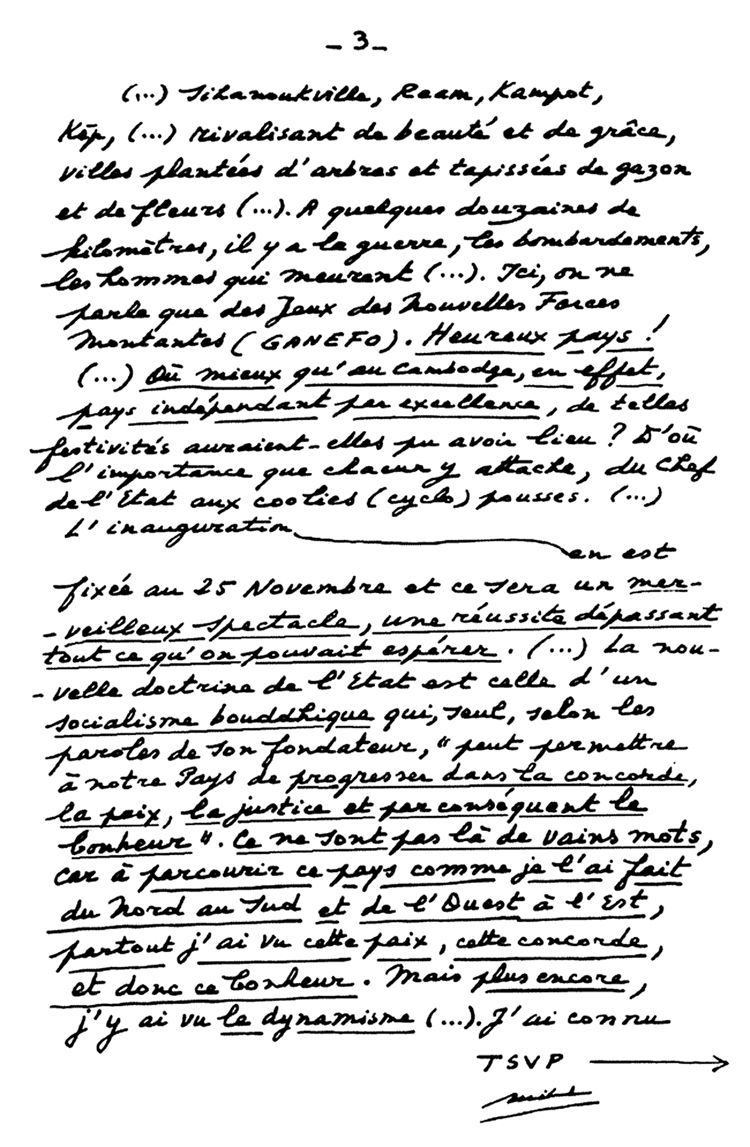 - 3 -
(...) Sihanoukville, Ream, Kampot,
Kèp, (...) rivalisant de beauté et de grâce,
villes plantées d'arbres et tapissées de gazon
et de fleurs (...). A quelques douzaines de
kilomètres, il y a la guerre, les bombardements,
les hommes qui meurent (...). Ici, on ne
parle que des Jeux des Nouvelles Forces
Montantes (GANEFO). Heureux pays !
(...) Où mieux qu'au Cambodge, en effet,
pays indépendant par excellence, de telles
festivités auraient-elles pu avoir lieu ? D'où
l'importance que chacun y attache, du Chef
de l'Etat aux coolies (cyclo) pousses. (...)
L'inauguration en est
fixée au 25 Novembre et ce sera un mer-
-veilleux spectacle, une réussite dépassant
tout ce qu'on pouvait espérer. (...) La nou-
-velle doctrine de l'Etat est celle d'un
socialisme bouddhique qui, seul, selon les
paroles de son fondateur, "peut permettre
à notre Pays de progresser dans la concorde,
la paix, la justice et par conséquent le
bonheur". Ce ne sont pas là de vains mots,
car à parcourir ce pays comme je l'ai fait
du Nord au Sud et de l'Ouest à l'Est,
partout j'ai vu cette paix, cette concorde,
et donc ce bonheur. Mais plus encore,
j'y ai vu le dynamisme (...). J'ai connu
TSVP